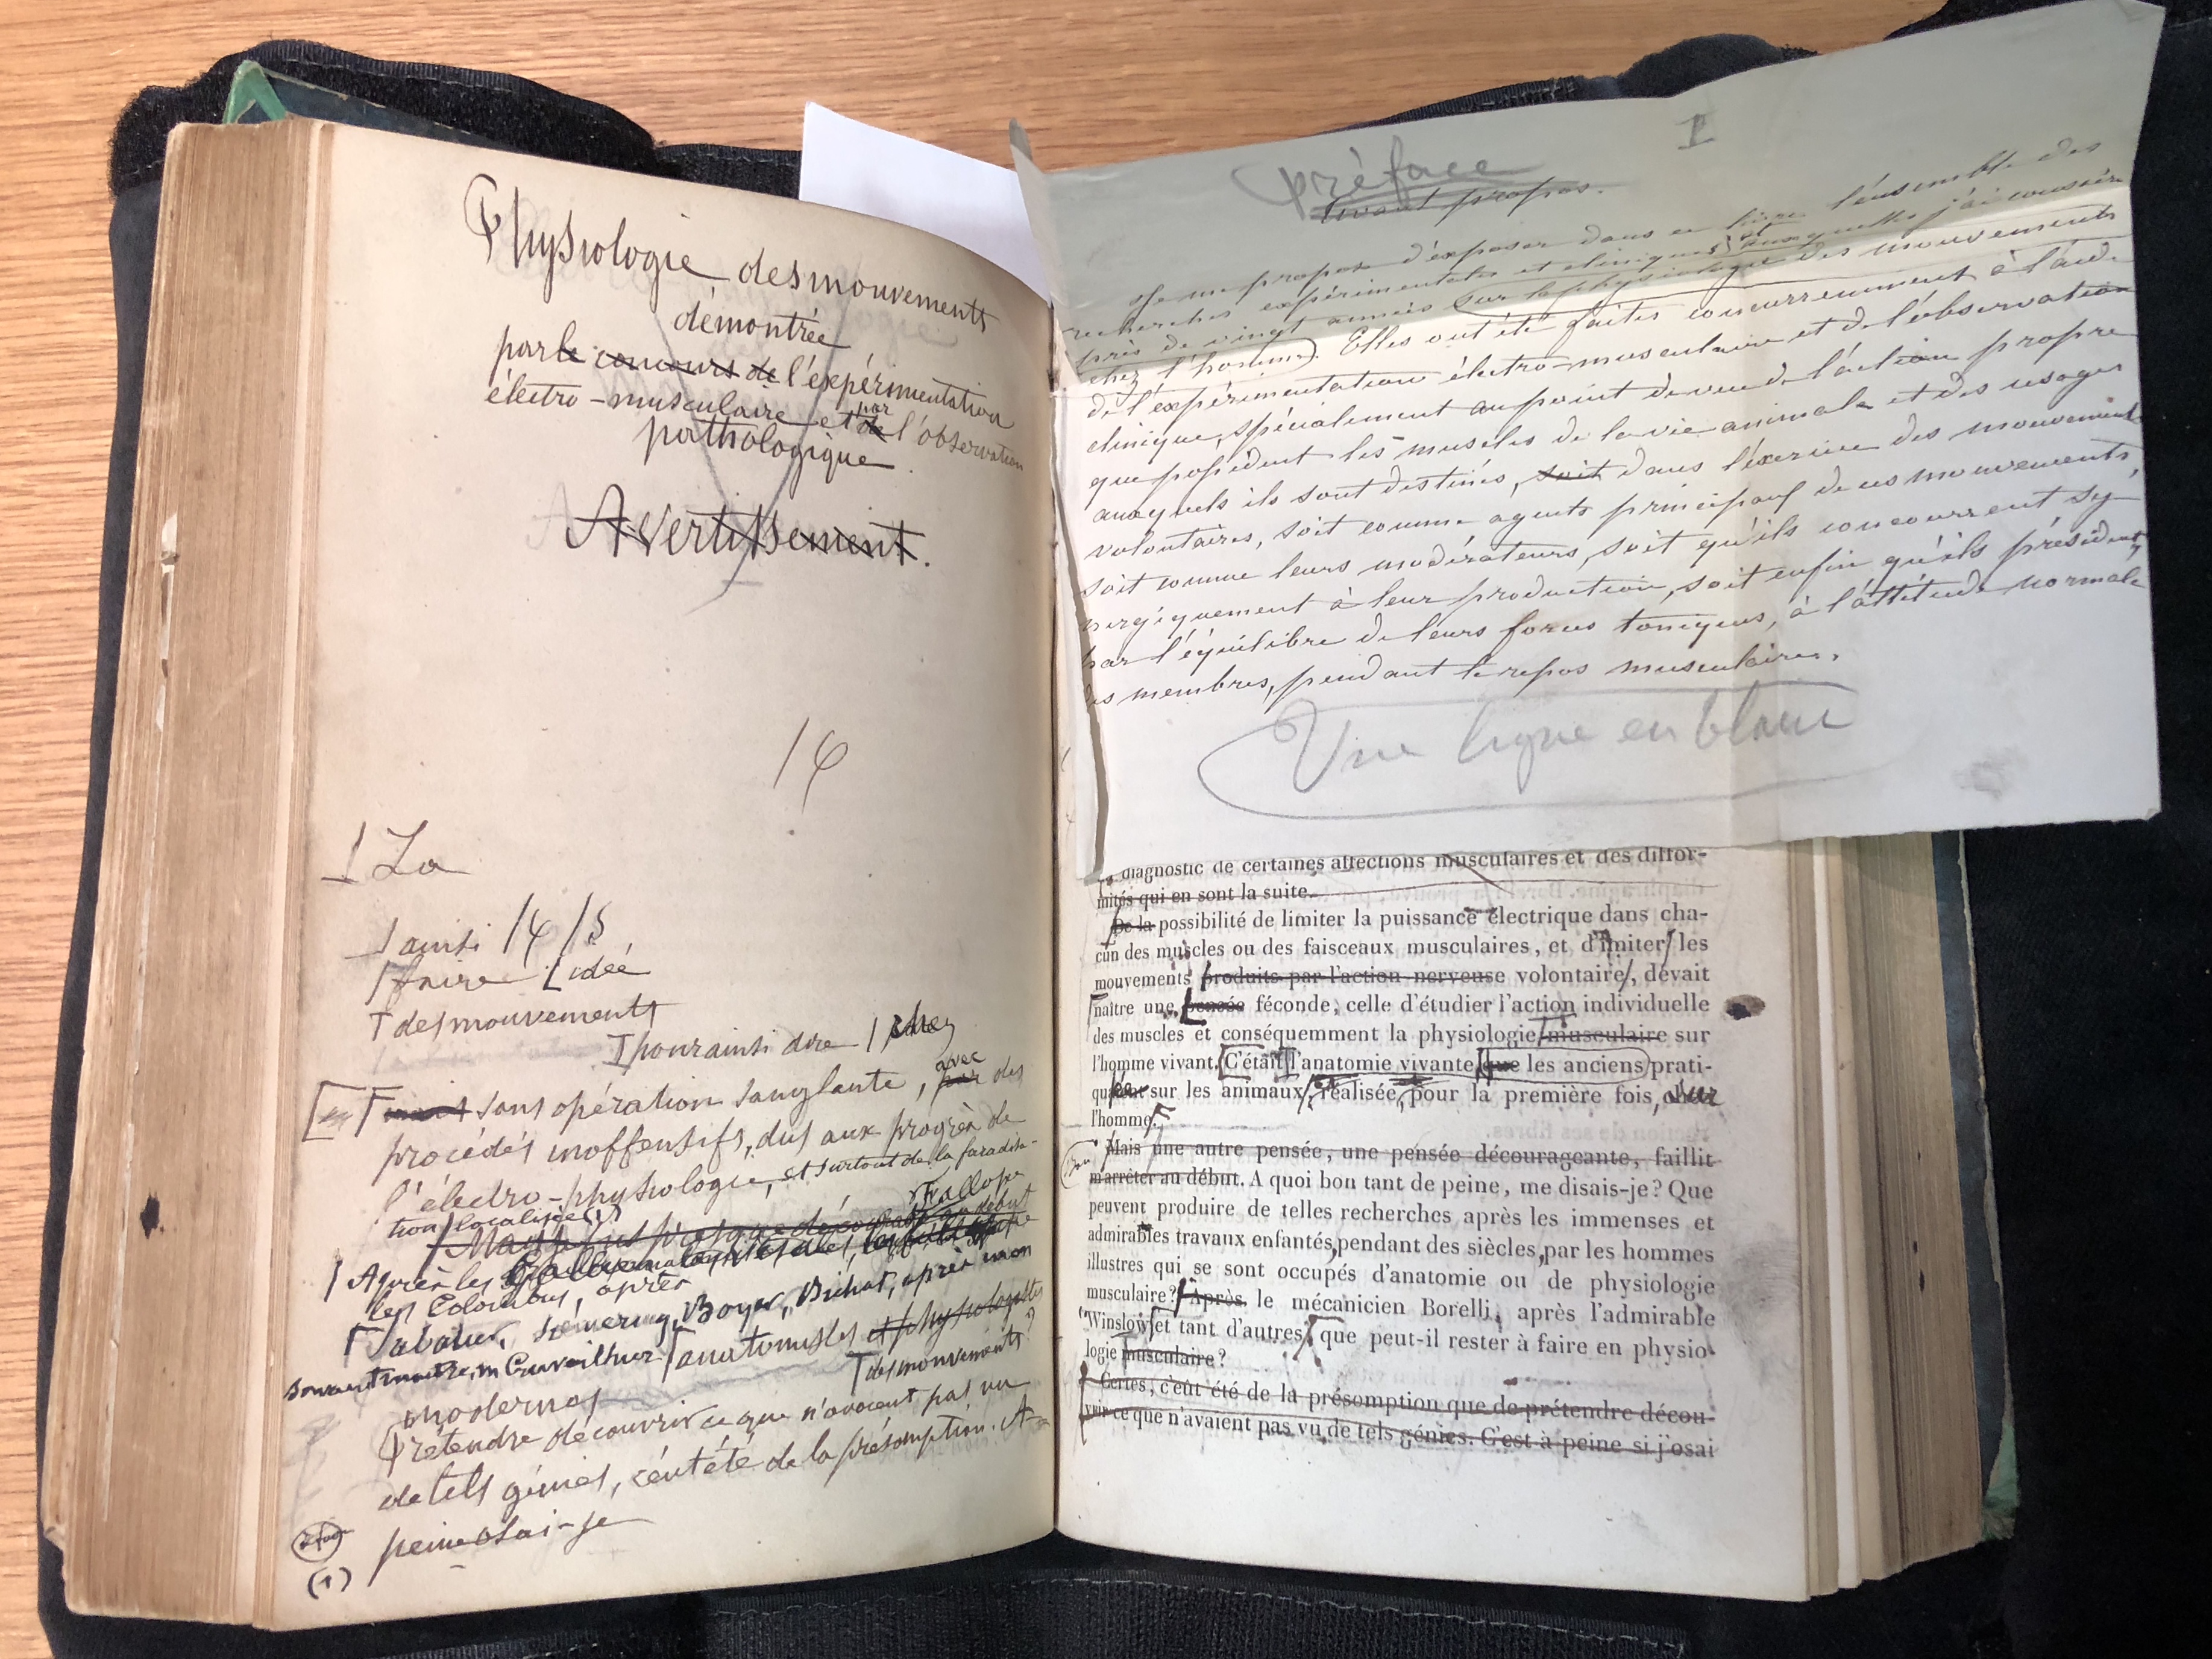 Physiologie des mouvements
démontrée
par le concours de l'expérimentation
électro-musculaire et de par l'observation
pathologique
Avertissement.
14
La
ainsi 14 15
faire idée
des mouvements
pour ainsi dire chez
sans opération sanglante, par avec des
procédés inoffensifs, dus aux progrès de
l'électro-physiologie, et surtout de la faradisa-
tion localisée (1)
Fallope
Après les
les Colombus, après
Sabatier, Sömering, Boyer, Bichat, après mon
savant maître, m Cruveilhier anatomistes et physiologistes
des mouvements?
modernes
Prétendre découvrir ce que n'avaient pas vu
de tels génies, c'eut été de la présomption. A
peine osai-je
(1)
I
Préface
Avant propos.
Je me propose d'exposer dans ce livre l'ensemble des
recherches expérimentales et cliniques auxquelles j'ai consacré
près de vingt années sur la physiologie des mouvements
chez l'homme. Elles ont été faites concurremment à l'aide
de l'expérimentation électro-musculaire et de l'observation
clinique, spécialement au point de vue de l'action propre
que possèdent les muscles de la vie animale et des usages
auxquels ils sont destinés, soit dans l'exercice des mouvements
volontaires, soit comme agents principaux de ces mouvements,
soit comme leurs modérateurs, soit qu'ils concourrent sy-
nergiquement à leur production, soit enfin qu'ils président,
par l'équilibre de leurs forces toniques, à l'attitude normale
des membres, pendant le repos musculaire.
Une ligne en blanc
diagnostic de certaines affections musculaires et des diffor-
mités qui en sont la suite.
De la possibilité de limiter la puissance électrique dans cha-
cun des muscles ou des faisceaux musculaires, et d'imiter les
mouvements produits par l'action nerveuse volontaire, devait
naître une pensée féconde; celle d'étudier l'action individuelle
des muscles et conséquemment la physiologie musculaire sur
l'homme vivant. C'était l'anatomie vivante que les anciens prati-
quaient sur les animaux, réalisée, pour la première fois, sur
l'homme.
Bon
Mais une autre pensée, une pensée décourageante, faillit
m'arrêter au début. A quoi bon tant de peine, me disais-je? Que
peuvent produire de telles recherches après les immenses et
admirables travaux enfantés, pendant des siècles, par les hommes
illustres qui se sont occupés d'anatomie ou de physiologie
musculaire? Après le mécanicien Borelli, après l'admirable
Winslow, et tant d'autres, que peut-il rester à faire en physio-
logie musculaire?
Certes, c'eût été de la présomption que de prétendre décou-
vrir ce que n'avaient pas vu de tels génies. C'est à peine si j'osai